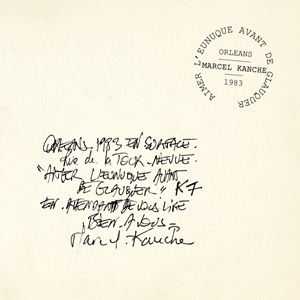 AIMER L'EUNUQUE AVANT DE GLAUQUER
ORLEANS
MARCEL KANCHE
1983
ORLEANS. 1983 EN SURFACE.
Rue de la TOUR. NEUVE.
"AIMER L'EUNUQUE AVANT
DE GLAUQUER" K7
EN ATTENDANT DE VOUS LIRE
BIEN A VOUS.
Marcel. Kanche